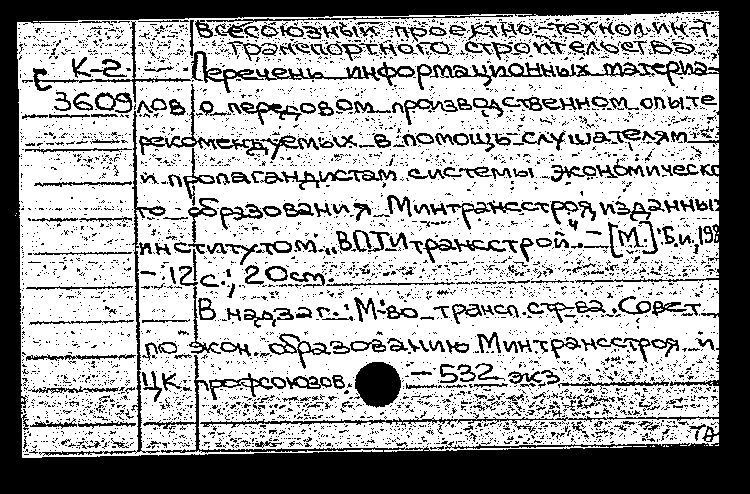 Всесоюзный проектно-технол. ин-т
транспортного строительства.
с К-2 — Перечень информационных материа-
3609 лов о передовом производственном опыте
рекомендуемых в помощь слушателям
и пропагандистам системы экономическо
го образования Минтрансстроя, изданных
институтом „ВПТИтрансстрой“. — [М.]: Б.и, 198
— 12 с.; 20 см.
В надзаг.: М-во трансп. стр-ва. Совет
по экон. образованию Минтрансстроя и
ЦК профсоюзов. — 532 экз
ТА